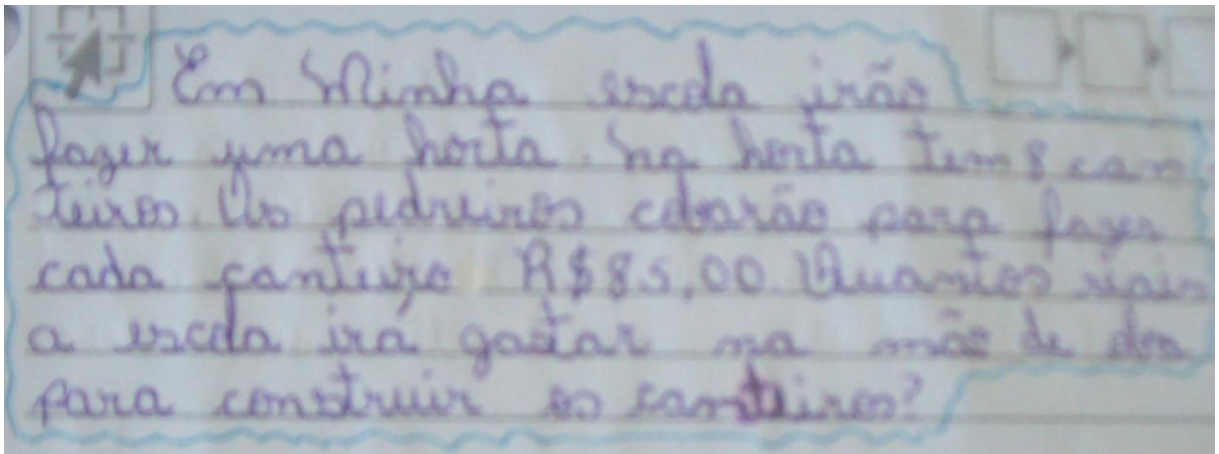 Em Minha escola irão
fazer uma horta. na horta tem 8 can
teiros. Os pedreiros cobarão para fazer
cada canteiro R$85,00. Quantos reais
a escola irá gastar na mão de
para construir os canteiros?